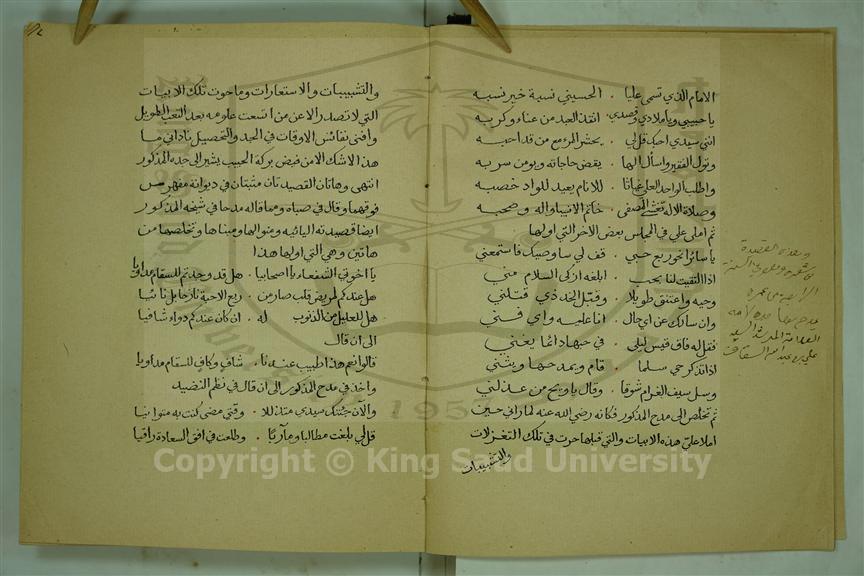 الامام الذي تسمى عليا . الحسيني نسبة خير نسبه
يا حبيبي ويا ملاذي وقصدي . انقذ العبد من عناء وكربه
انني سيدي احبك قل لي . يحشر المرء مع من قد احبه
وتول الفقير واسأل الها . يقض حاجاته ويومن سربه
واطلب الواحد العلي غياثا . للانام يعيد للواد خصبه
وصلاة الاله تغشى المصفى . خاتم الانبيا واله وصحبه
ثم املى علي في المجلس بعض الاخر التي اولها
يا سائرا نحو ربع حبي . قف لي ساوصيك فاستمعني
اذا التقيت لنا بحب . ابلغه ازكى السلام مني
وحيه واعتنق طويلا . وقبل الخد ذي قتلني
وان سالك عن اي حال . انا عليه واي فني
فقل له فاق قيس ليلى . في حبها دائما يغني
اذا تذكر حي سلما . قام ويمدحها ويثني
وسل سيف الغرام شوقا . وقال يا ويح من عذلني
ثم تخلص الى مدح المذكور فكانه رضي الله عنه لما راني حين
املا علي هذه الابيات والتي قبلها حرت في تلك التغزلات
والتشبيبات
وهذه القصيدة
مدح بها
العلامة السيد
السقاف
والتشبيبات والاستعارات وما حوت تلك الابيات
التي لا تصدر الا عن من اتسعت علومه بعد التعب الطويل
وافنى نفائس الاوقات في الجد والتحصيل ناداني ما
هذا الاشك الا من فيض بركة الحبيب يشير الى جده المذكور
انتهى وهاتان القصيدتان مثبتتان في ديوانه مفهرس
فوقهما وقال في صباه ومما قاله مدحا في شيخه المذكور
ايضا قصيدته اليائيه ومنوالها ومبناها وتخلصها من
هاتين وهي التي اولها هذا
يا اخوتي الشفعاء يا اصحابيا . هل قد وجدتم للسقام مداويا
هل عندكم لمريض قلب صار من . ربع الاحبة نازحا بل نائيا
هل للعليل من الذنوب له . ان كان عندكم دواء شافيا
الى ان قال
قالوا نعم هذا طبيب عندنا . شاف وكاف للسقام مداويا
واخذ في مدح المذكور الى ان قال في نظم النضيد
والآن جئتك سيدي متذللا . وقتى مضى كنت به متوانيا
قل لي بلغت مطالبا ومآربا . وطلعت في افق السعادة راقيا
Copyright © King Saud University
1957